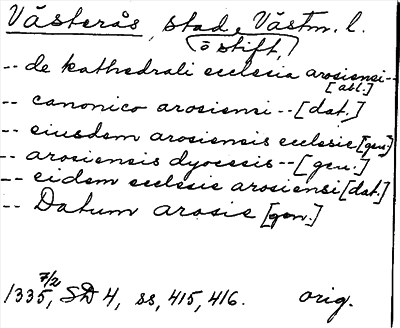 Västerås, stad, Västm. l.
(o stift,)
-- de kathedrali ecclesia arosiensi--
[abl.]
-- canonico arosiensi -- [dat.]
-- eiusdem arosiensis ecclesie [gen.]
-- arosiensis dyocesis -- [gen.]
-- eidem ecclesie arosiensi [dat.]
-- Datum arosie [gen.]
1335, 7/2 SD 4, ss, 415, 416. orig.